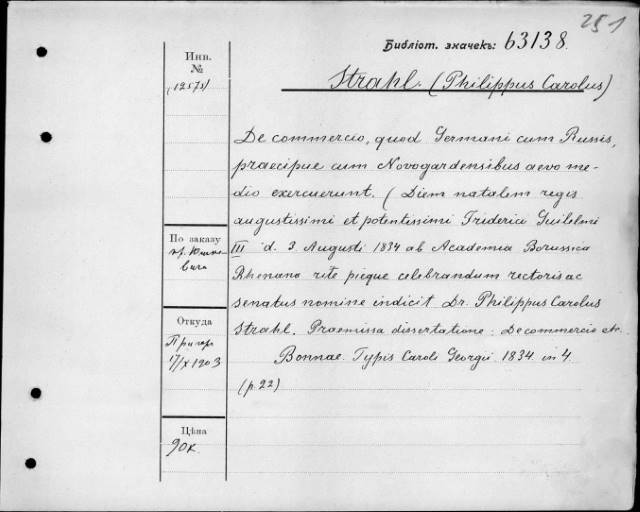 251
Библіот. значекъ: 63138.
Strahl. (Philippus Carolus)
Инв.
№
(12575)
De commercio, quod Germani cum Russis,
praecipue cum Novogardensibus aevo me-
dio exercuerunt. (Diem natalem regis
augustissimi et potentissimi Friderici Guilelmi
III d. 3. Augusti 1834 ab Academia Borussica
Rhenana rite pieque celebrandum rectoris ac
senatus nomine indicit Dr. Philippus Carolus
Strahl. Praemissa dissertatione: De commercio etc.
Bonnae. Typis Caroli Georgii. 1834. in 4.
(p. 22)
По заказу
Откуда
17/X 1903
Цѣна
90к.